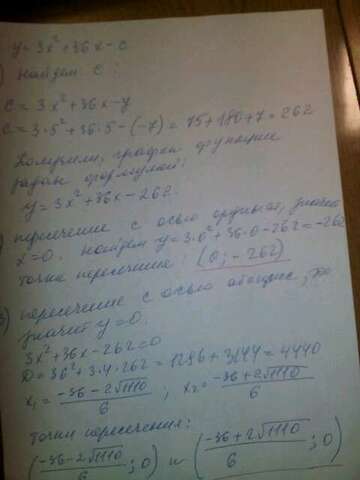 y=3x²+36x-c
) найдем c:
c=3x²+36x-y
c=3·5²+36·5-(-7)=75+180+7=262
Получили, график функции
задан формулой:
y=3x²+36x-262.
) пересечение с осью ординат, значит
x=0. найдем y=3·0²+36·0-262=-262
точка пересечение: (0; -262)
) пересечение с осью абсцисс,
значит y=0.
3x²+36x-262=0
D=36²+3·4·262=1296+3144=4440
x₁=(-36-2√1110)/6 ; x₂=(-36+2√1110)/6
точки пересечения:
((-36-2√1110)/6 ; 0) и ((-36+2√1110)/6 ; 0)